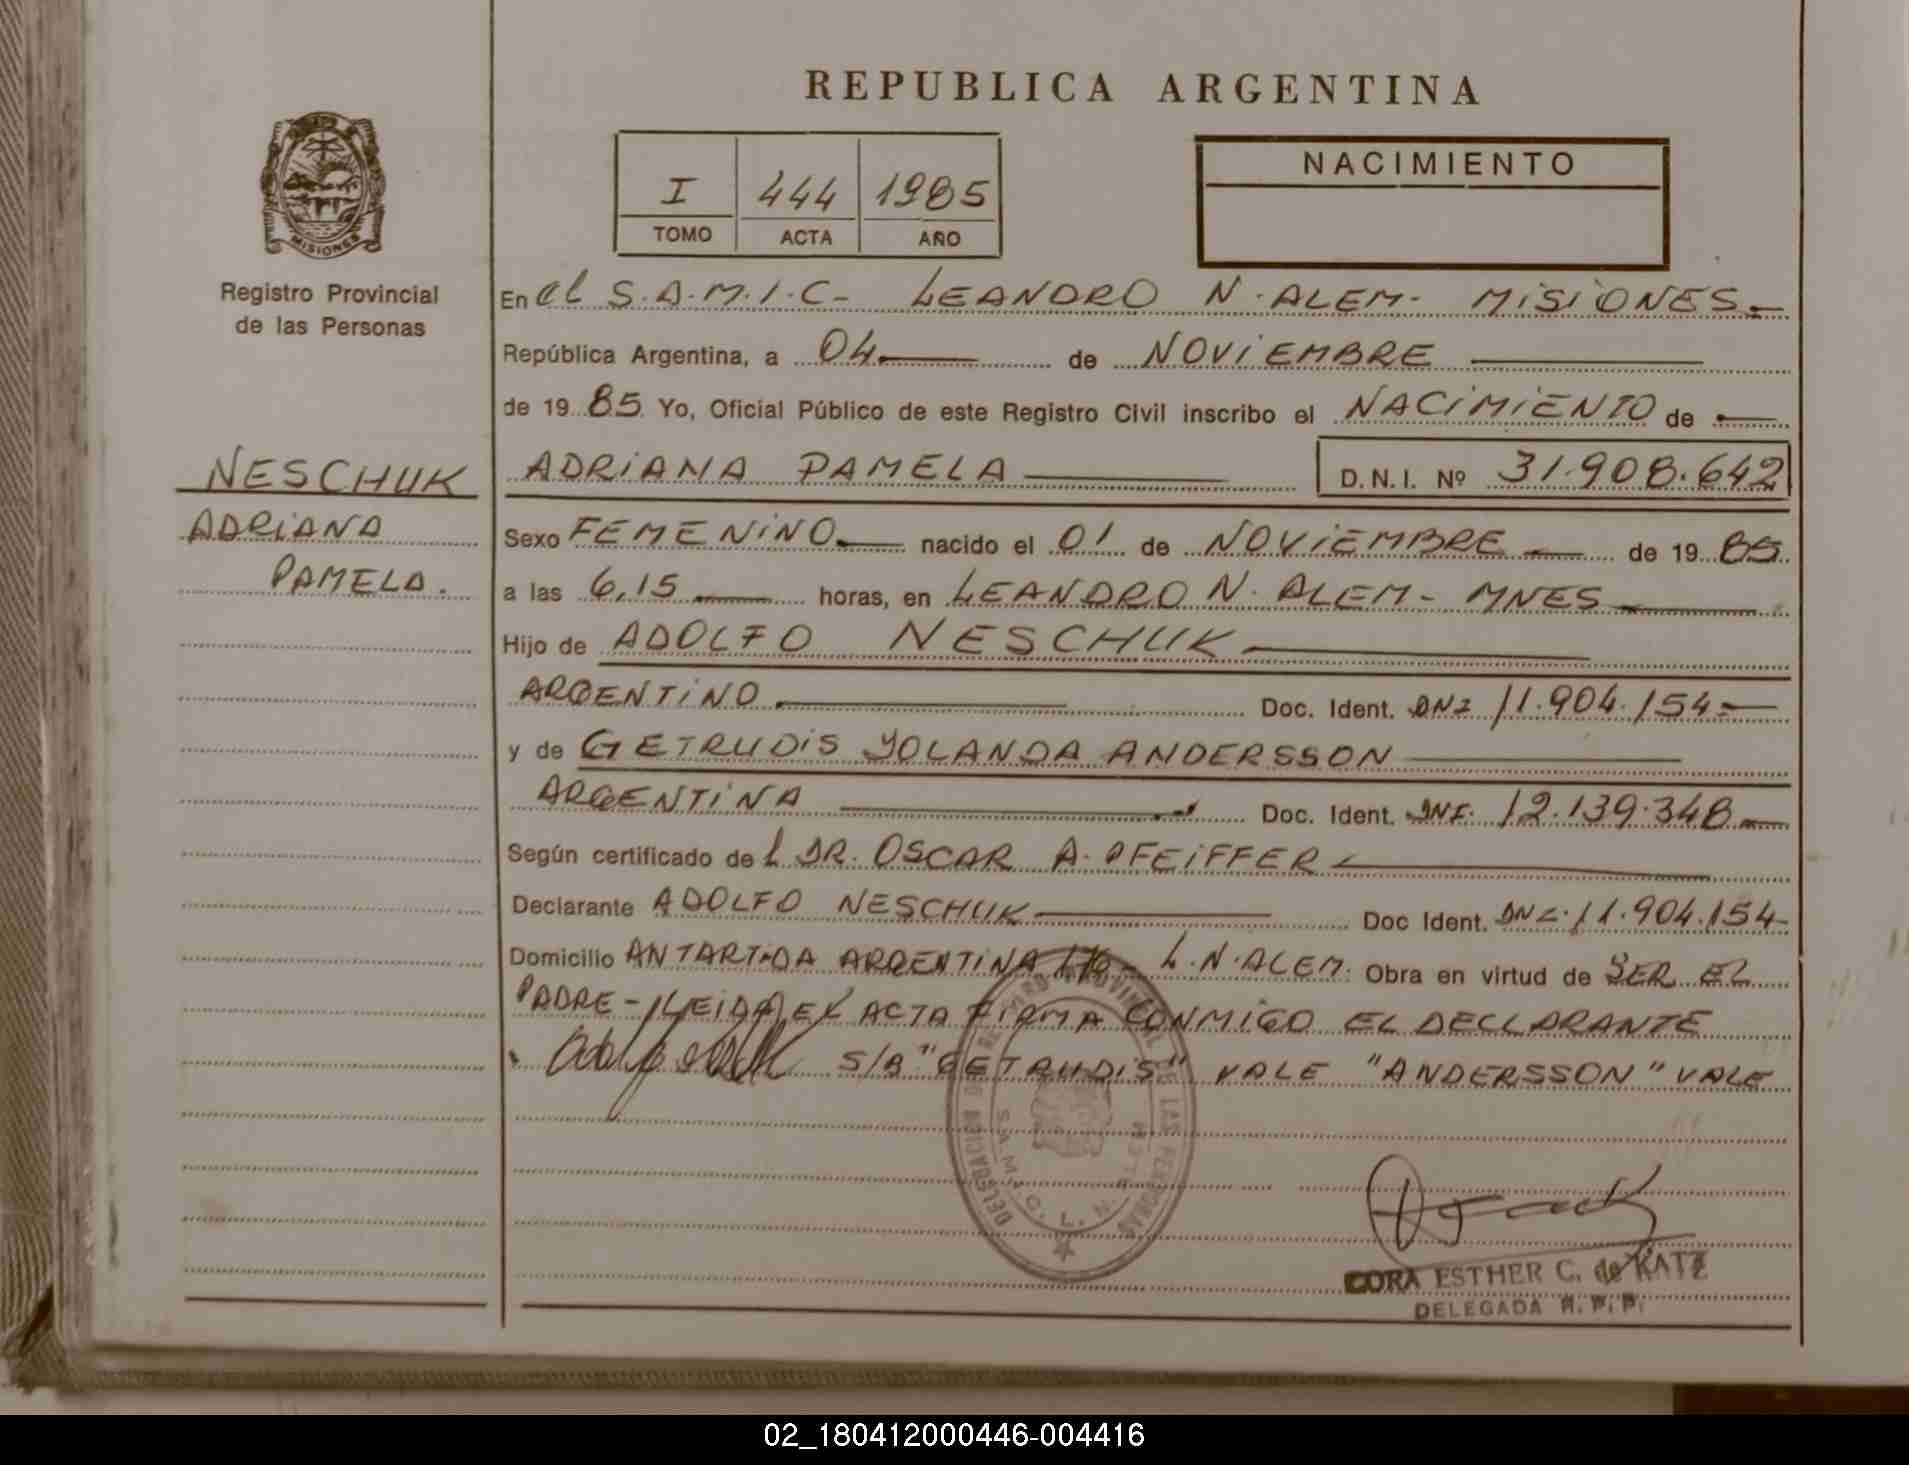 REPUBLICA ARGENTINA
I 444 1985
TOMO ACTA AÑO
NACIMIENTO
MISIONES
Registro Provincial
de las Personas
NESCHUK
ADRIANA
PAMELA.
En el S.A.M.I.C- LEANDRO N. ALEM- MISIONES.-
República Argentina, a 04 de NOVIEMBRE
de 19 85 Yo, Oficial Público de este Registro Civil inscribo el NACIMIENTO de
ADRIANA PAMELA D.N.I. Nº 31.908.642
Sexo FEMENINO nacido el 01 de NOVIEMBRE de 19 85
a las 6,15 horas, en LEANDRO N. ALEM- MNES
Hijo de ADOLFO NESCHUK
ARGENTINO Doc. Ident. DNI 11.904.154
y de GETRUDIS YOLANDA ANDERSSON
ARGENTINA Doc. Ident. DNI. 12.139.348
Según certificado del DR. OSCAR A. PFEIFFER
Declarante ADOLFO NESCHUK Doc Ident. DNI. 11.904.154
Domicilio ANTARTIDA ARGENTINA L.N.ALEM. Obra en virtud de SER EL
PADRE- LEIDA EL ACTA FIRMA CONMIGO EL DECLARANTE
S/B "GETRUDIS" VALE "ANDERSSON" VALE
DELEGACION DEL REGISTRO PROVINCIAL DE LAS PERSONAS
S.A.M.I.C. L. N.
CORA ESTHER C. de KATZ
DELEGADA R. P. P.
02_180412000446-004416